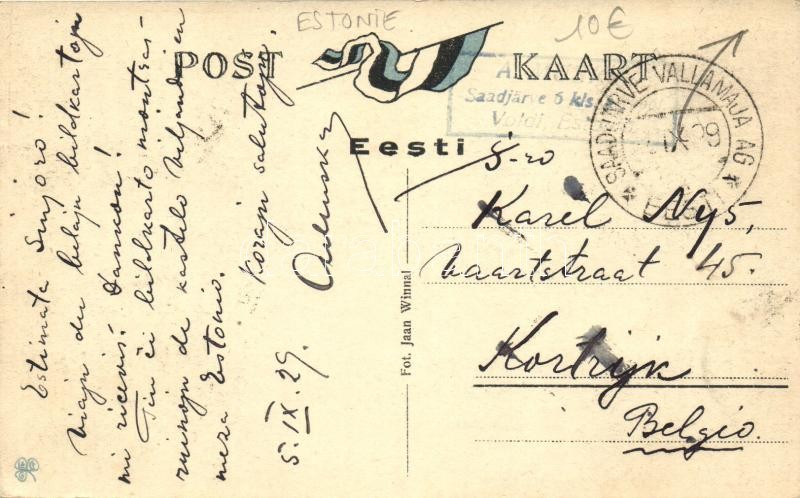 ESTONIE
10€
POST KAART
Eesti
Saadjärve 6 kls.
Voldi, Eesti
SAADJÄRVE VALLAMAJA AG
EESTI
Estimata Sinjoro!
Viajn du belajn bildkartojn
mi ricevis. Dankon!
Tiu ĉi bildkarto montras
ruinojn de kastelo Viljandi en
meza Estonio.
Korajn salutojn,
5.IX.29.
S-ro
Karel Nys,
Vaartstraat 45.
Kortrijk
Belgio.
Fot. Jaan Winnal